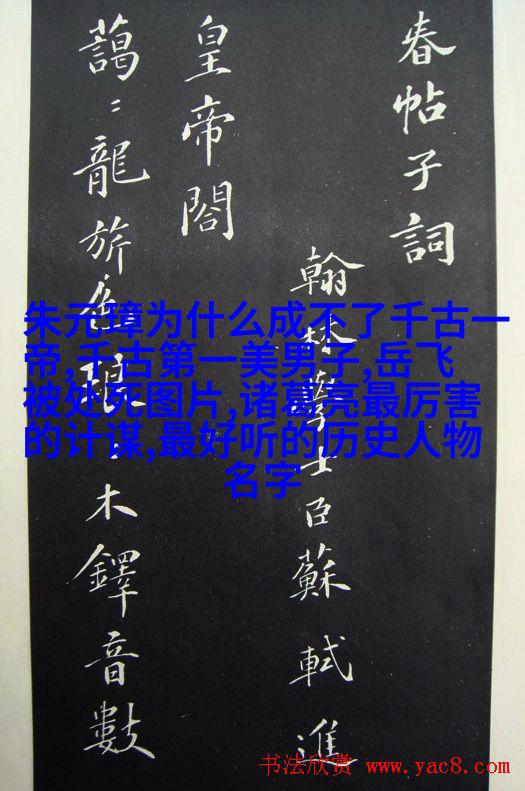 春帖子詞
翰林學士臣蘇軾進
皇帝閣
藹〻龍旂色琅〻木鐸音數
朱元璋为什么成不了千古一
帝,千古第一美男子,岳飞
被处死图片,诸葛亮最厉害
的计谋,最好听的历史人物
名字
书法欣赏 www.yac8.com